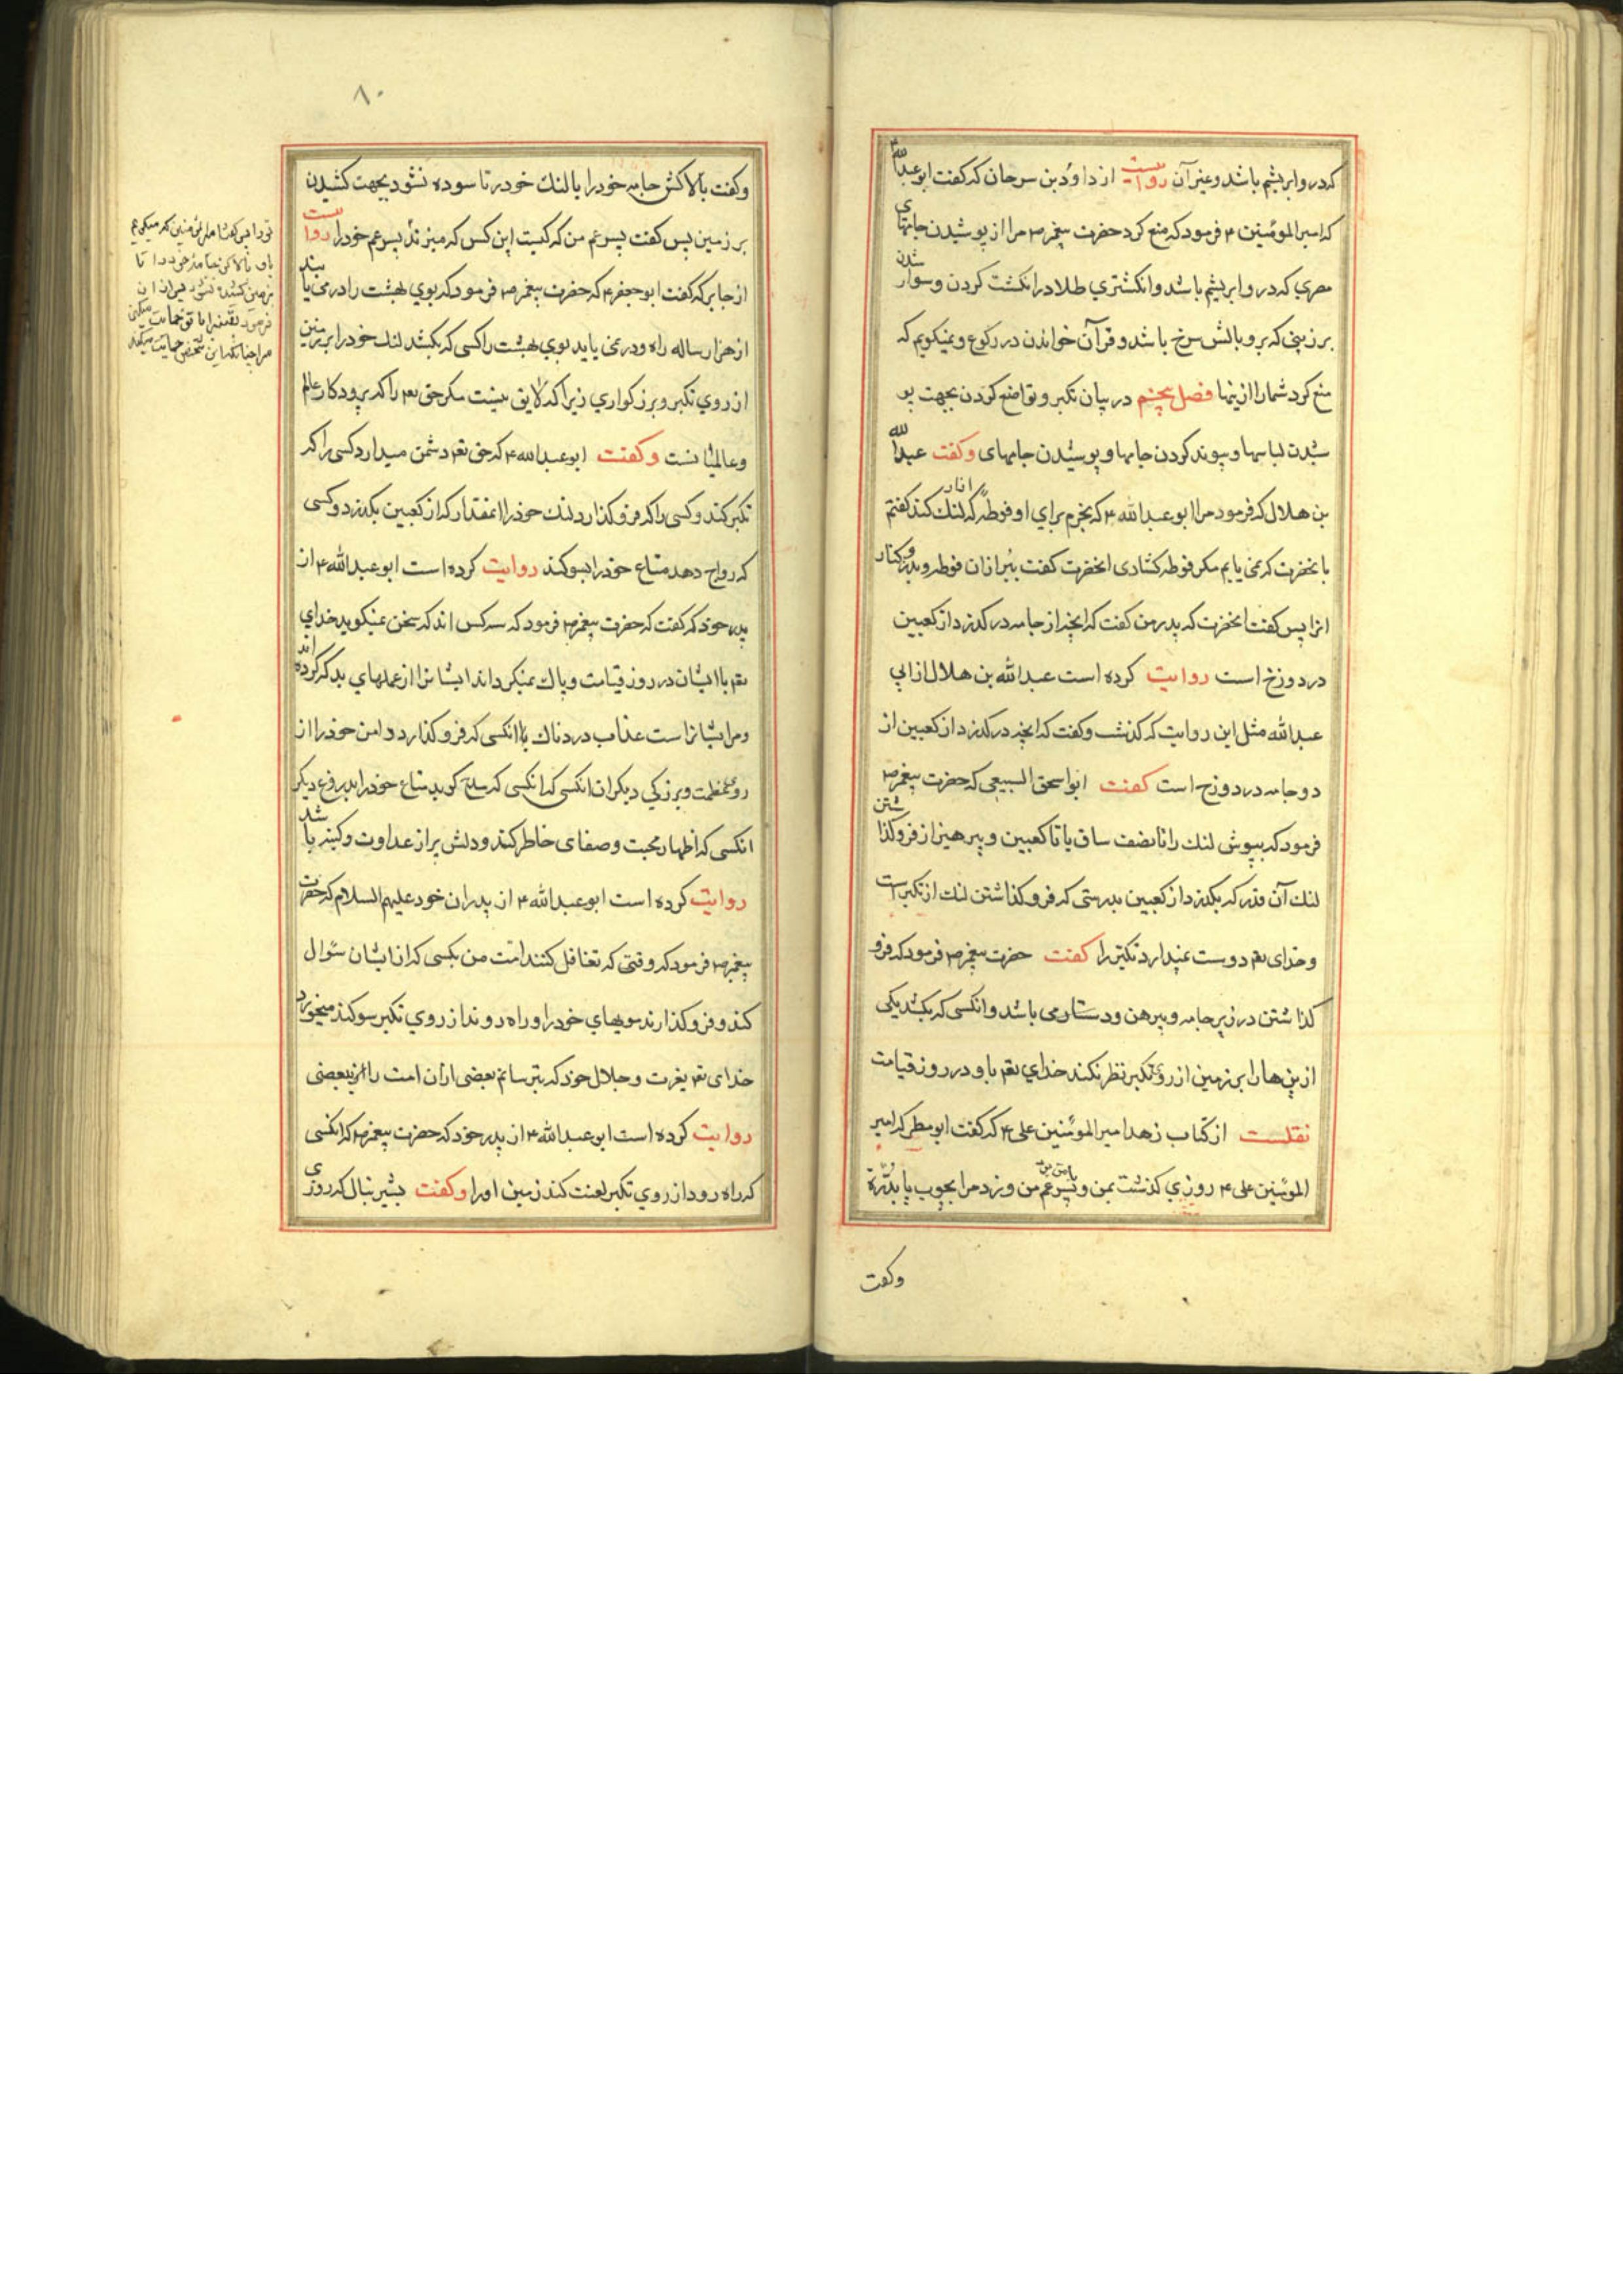 که در و ابریشم باشد و غیر آن روایست از داود بن سرحان که گفت ابو عبدالله ۴
که امیر المومنین ۴ فرمود که منع کرد حضرت پیغمبر ص مرا از پوشیدن جامهای
مصری که در و ابریشم باشد و انکشتری طلا در انکشت کردن و سوار شدن
بر زینی که برو بالش سرخ باشد و قرآن خواندن در رکوع و نمیکویم که
منع کرد شما را ازینها فصل پنجم در بیان تکبر و تواضع کردن بجهت پو
شیدن لباسها و پیوند کردن جامها و پوشیدن جامهای وکفت عبدالله
بن هلال که فرمود مرا ابو عبد الله ۴ که بخرم برای او فوطهٔ که لنک کند کفتم
بانحضرت که نمی یابم مکر فوطه کشادی انحضرت کفت ببر از ان فوطه و بدوز کنار
انرا پس کفت انحضرت که پدر من کفت که انچه از جامه در کذرد از کعبین
در دوزخ است روایت کرده است عبد الله بن هلال از ابی
عبد الله مثل این روایت که کذشت و کفت که انچه در کذرد از کعبین از
دو جامه در دوزخ است کفت ابو اسحق السبیعی که حضرت پیغمبر ص
فرمود که بپوش لنک را تا نصف ساق یا تا کعبین و پرهیز از فرو کذاشتن
لنک آن قدر که بکذرد از کعبین بدرستی که فرو کذاشتن لنک از تکبر است
و خدای تعم دوست نمیدارد تکبر را کفت حضرت پیغمبر ص فرمود که فرو
کذاشتن در زیر جامه و پیرهن و دستار می باشد و انکسی که بکشد یکی
ازین ها را بر زمین از روی تکبر نظر نکند خدای تعم باو در روز قیامت
نقلست از کتاب زهد امیر المومنین علی ۴ که کفت ابو مطر که امیر
المومنین علی ۴ روزی کذشت بمن و پسر عم من با من بود و زد مرا بچوب یا بدرّه
وکفت
۸۰
وکفت بالا کش جامه خود را یا لنک خود را تا سوده نشود بجهت کشیدن
بر زمین پس کفت پسر عم من که کیست این کس که میزند پسر عم خود را روایست
از جابر که کفت ابو جعفر ۴ که حضرت پیغمبر ص فرمود که بوی بهشت را در می یابند
از هزار ساله راه و در نمی یابد بوی بهشت را کسی که بکشد لنک خود را بر زمین
از روی تکبر و بزرکواری زیرا که لایق نیست مکر حق تعم را که پرودکار عالم
و عالمیانست وکفت ابو عبد الله ۴ که حق تعم دشمن میدارد کسی را که
تکبر کند و کسی را که فرو کذارد لنک خود را انمقدار که از کعبین بکذرد و کسی
که رواج دهد متاع خود را بسوکند روایت کرده است ابو عبد الله ۴ از
پدر خود که کفت که حضرت پیغمبر ص فرمود که سه کس اند که سخن نمیکوید خدای
تعم با ایشان در روز قیامت و پاک نمیکرداند ایشانرا از عملهای بد که کرده اند
و مر ایشانراست عذاب دردناک یا انکسی که فرو کذارد دامن خود را از
روی عظمت و بزرکی دیکران انکسی که انکسی که سلع کوید متاع خود را بدروغ دیکر
انکسی که اظهار محبت و صفای خاطر کند و دلش پر از عداوت و کینه باشد
روایت کرده است ابو عبد الله ۴ از پدران خود علیهم السلام که حضرت
پیغمبر ص فرمود که وقتی که تغافل کنند امت من بکسی که از ایشان سوال
کند و فرو کذارند مویهای خود را و راه روند از روی تکبر سوکند میخورد
خدای تعم بعزت و جلال خود که بترسانم بعضی ازان امت را از بعضی
روایت کرده است ابو عبد الله ۴ از پدر خود که حضرت پیغمبر ص که انکسی
که راه رود از روی تکبر لعنت کند زمین او را وکفت بشیر نبال که روزی